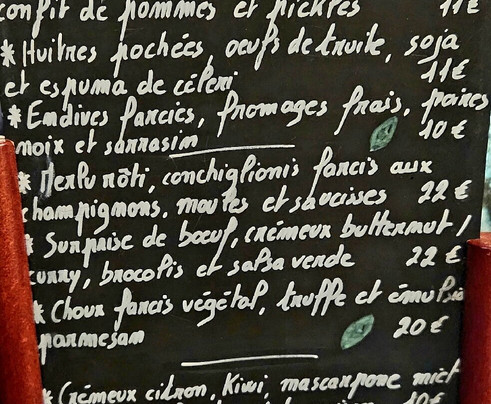 confit de pommes et pickles 11€
* Huîtres pochées, oeufs de truite, soja
et espuma de céleri 11€
* Endives farcies, fromages frais, poires
noix et sarrasin 10€
* Merlu rôti, conchiglionis farcis aux
champignons, moules et saucisses 22€
* Surprise de boeuf, crémeux butternut /
curry, brocolis et salsa verde 22€
* Choux farcis végétal, truffe et émulsion
parmesan 20€
* Crémeux citron, Kiwi, mascarpone miel
10€